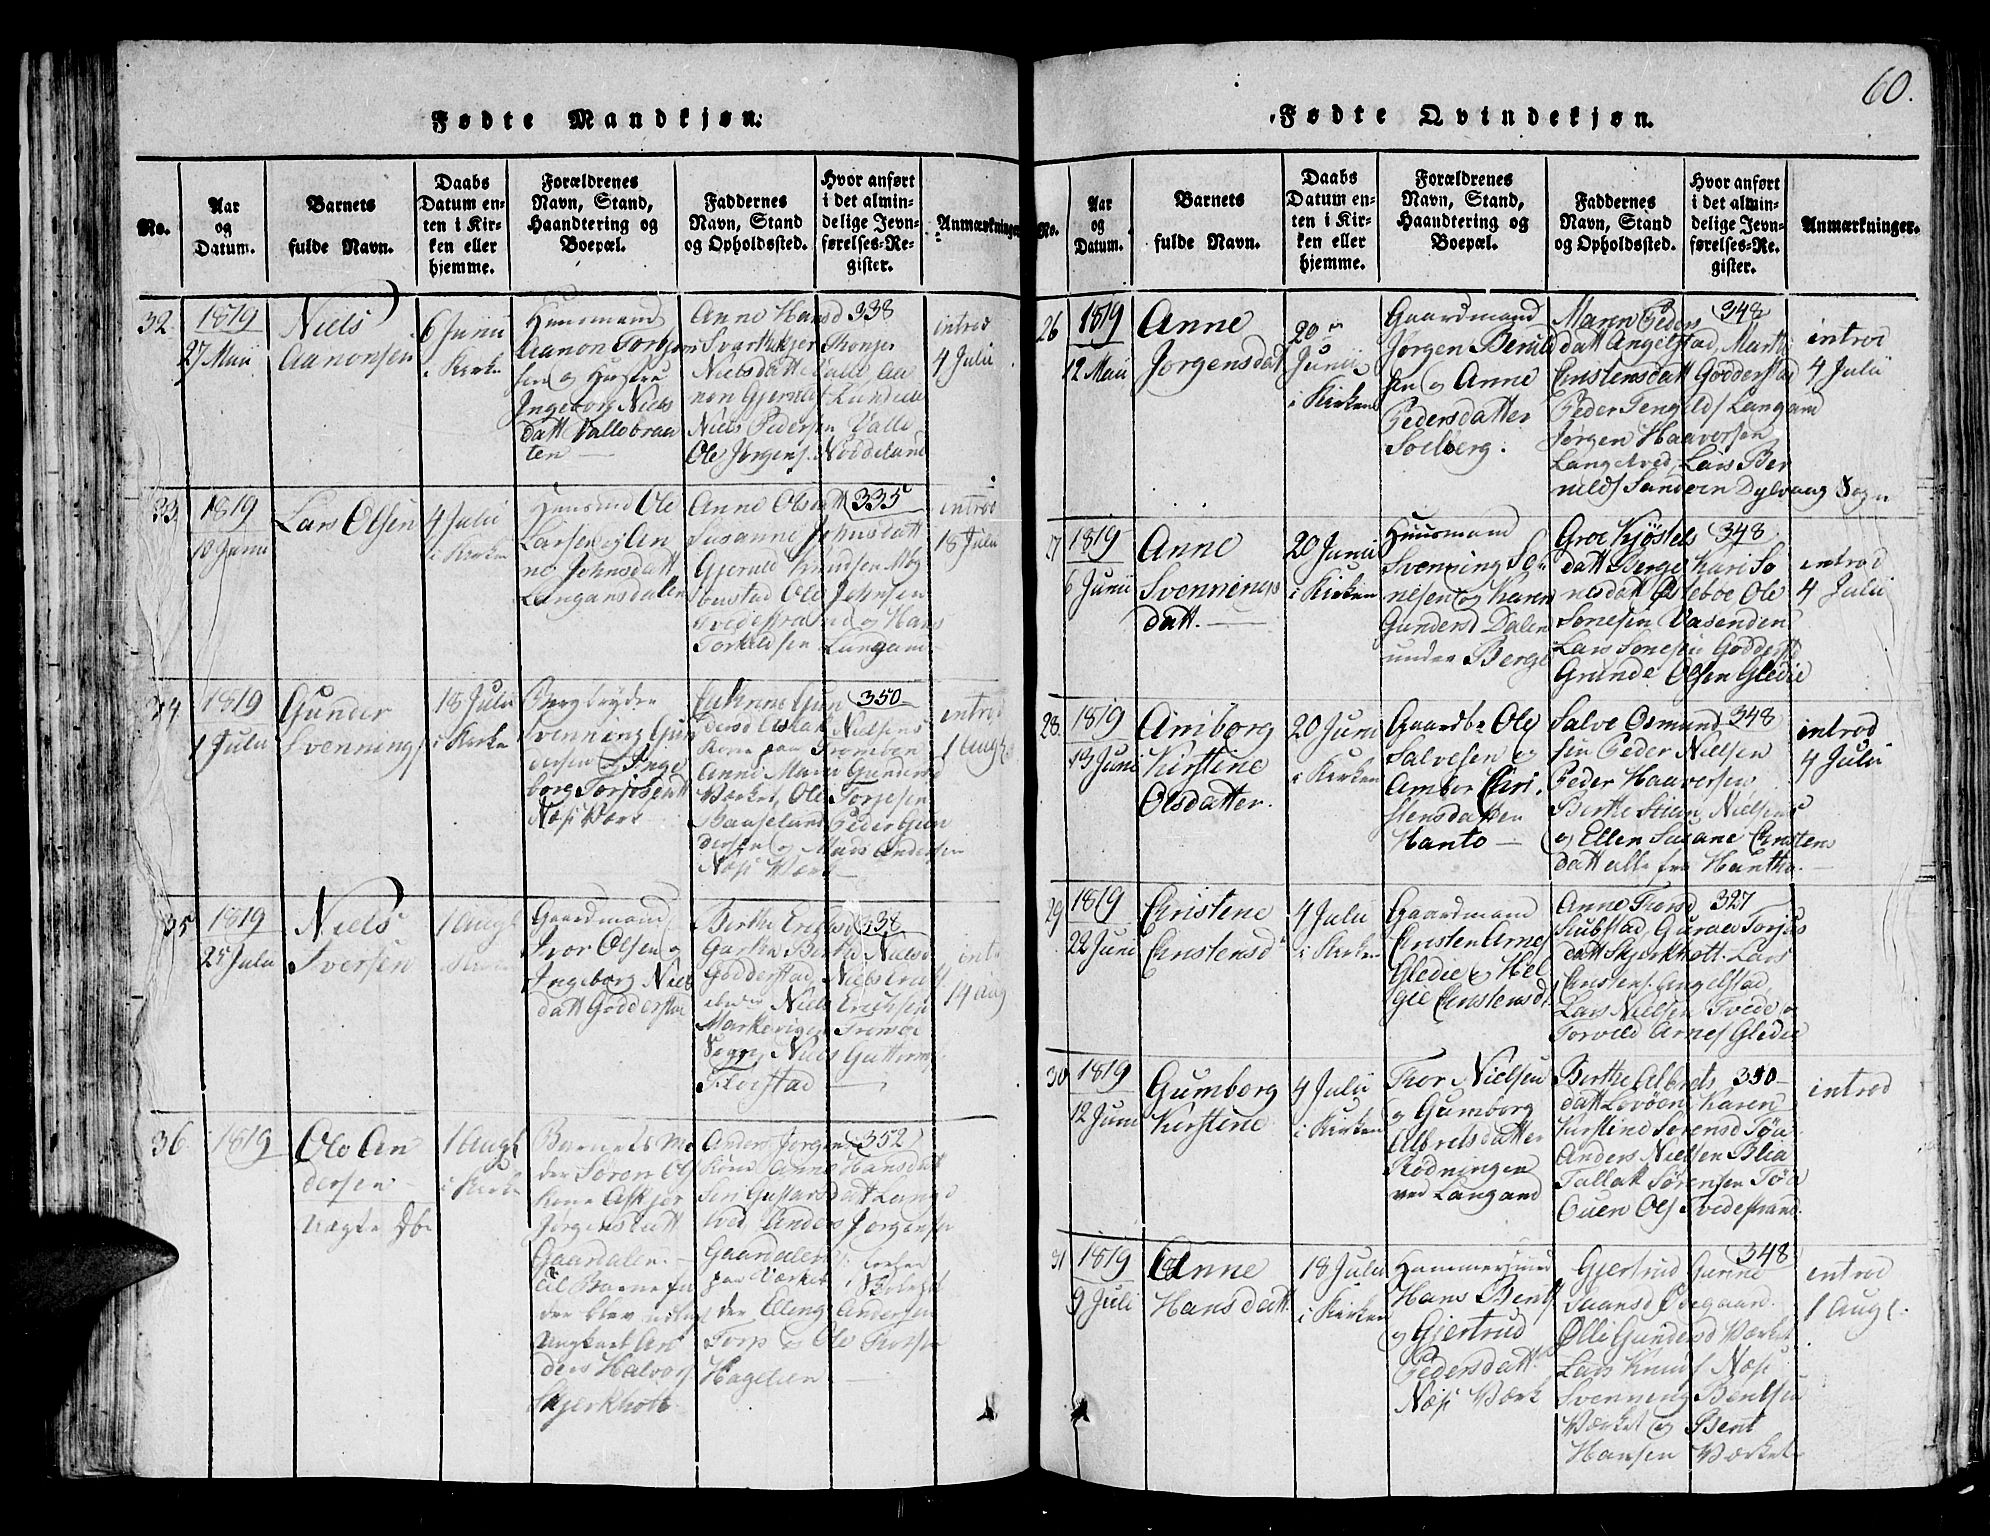 60.
Fødte Mandkjøn.
No.
Aar og Datum.
Barnets fulde Navn.
Daabs Datum enten i Kirken eller hjemme.
Forældrenes Navn, Stand, Haandtering og Boepæl.
Faddernes Navn, Stand og Opholdssted.
Hvor anført i det almindelige Jevnførelses-Register.
Anmærkninger
32.
1819
27 Maii
Niels
Aanonsen
6 Junii
i Kirke
Huusmand
Aanon Torkjer
sen og Hustrue
Ingeborg Niels
datt Vallebraa
ten
Anne Hansd
Svartkjer Thonje
Nielsdatt Valle Aa
non Gjerulds Lundeli
Niels Pedersen Valle
Ole Jørgens. Nøddelund
338
introd
4 Julii
33
1819
10 Junii
Lars Olsen
4 Julii
i Kirke
Huusmd Ole
Larsen og An
ne Johnsdatt
Langansdalen
Anne Olsdatt
Susanne Johnsdatt
Gjeruld Knudsen
Ole Johnsen
Svedestrand og Hans
Torkildsen Langan
335
introd
18 Julii
34
1819
1 Julii
Gunder
Svennings
18 Julii
i Kirke
Svenning Gun
dersen og Inge
borg Torjusdatt
Næss Værk
Anne Marie Gundersd
Værket, Ole Torjesen
Peder Gun
dersen og Mads Andersen
Næss Værk
350
introd
1 Augs
35
1819
25 Julii
Niels
Iversen
1 Augs
i Kirke
Gaardmand
Ivor Olsen og
Ingeborg Niels
datt Godderstad
Berthe Eriksd
Garthe Berthe Nielsd
Godderstad
Niels Eriksen
Sogn Niels Guttorms
Fierstad
338
14 Aug
36
1819
Ole An
dersen
uægte
1 Augs
i Kirke
Barnets Mo
der Søren Ols
Kone Asbjør
Jørgensdatt
Gaardalen
til Barnefa
der blev udlagt
Ungkarl An
ders Halvors
Skjerkholt
Anders Jørgens
Kone Anne Hansdatt
Siri Gustavsdatt Lang
tved Anders Jørgensen
Gaardalen
paa Værket
der Elling Andersen
Torp og Ole Thorsen
Hagelien
352
Fødte Qvindekjøn.
No.
Aar og Datum.
Barnets fulde Navn.
Daabs Datum enten i Kirken eller hjemme.
Forældrenes Navn, Stand, Haandtering og Boepæl.
Faddernes Navn, Stand og Opholdssted.
Hvor anført i det almindelige Jevnførelses-Register.
Anmærkninger.
26
1819
12 Maii
Anne
Jørgensdatt
20
Junii
i Kirken
Gaardmand
Jørgen Beruld
sen og Anne
Pedersdatter
Solberg.
Maren Peders
datt Angelstad, Marthe
Christensdatt Godderstad
Peder Tengelds Langand
Jørgen Haaversen
Langetved, Lars Ber
nilds Sandven Dybvaag Sogn
348
introd
4 Julii
27
1819
6 Junii
Anne
Svennings
datt.
20 Junii
i Kirken
Huusmand
Svenning So
nesen og Karen
Gundersd Dalen
under Berge
Groe Kjøstels
datt Berge Kari So
nesdatt Øsleboe Ole
Sonesen Vasenden
Lars Sonesen Godderstd
Grunde Olsen Gledie
348
introd
4 Julii
28.
1819
13 Junii
Amborg
Kirstine
Olsdatter.
20 Juni
i Kirken
Gaardbr Ole
Salvesen og
Amber Chri
stensdatter
Hanto
Salve Osmund
sen Peder Nielsen
Peder Haaversen
Berthe Stian Nielsens
og Ellen Susane Christens
datt alle fra Hantho.
348
introd
4 Julii
29
1819
22 Juni
Christene
Christensd
4 Julii
i Kirken
Gaardmand
Christen Arnes
Gledie og Hel
gie Christensdt
Anne Thorsd
Lubstad, Guraa Torjus
datt Skjerkholt. Lars
Christens. Angelstad,
Lars Nielsen Tvede og
Torvild Arnes Gledie
327
30
1819
12 Juni
Gumborg
Kirstine
4 Julii
i Kirken
Thor Nielsen
og Gumborg
Albretsdatter
Rødningen
ved Langand
Berthe Albrets
datt Lovøen, Karen
Kirstine Sørensd Tøa
Anders Nielsen Blia
Tallak Sørensen Tøa
Ouen Ols Svedestrand.
350
introd
31
1819
9 Juli
Anne
Hansdatt
18 Julii
i Kirken
Hammersmed
Hans Bents
og Gjertrud
Pedersdatt
Næss Værk
Gjertrud Gunne
Saansd Øvegaard
Ølli Gundersd Værket
Lars Knuds Næss
Svenning Bentsen
Værket og Bent
Hansen Værket
348
introd
1 Aug.